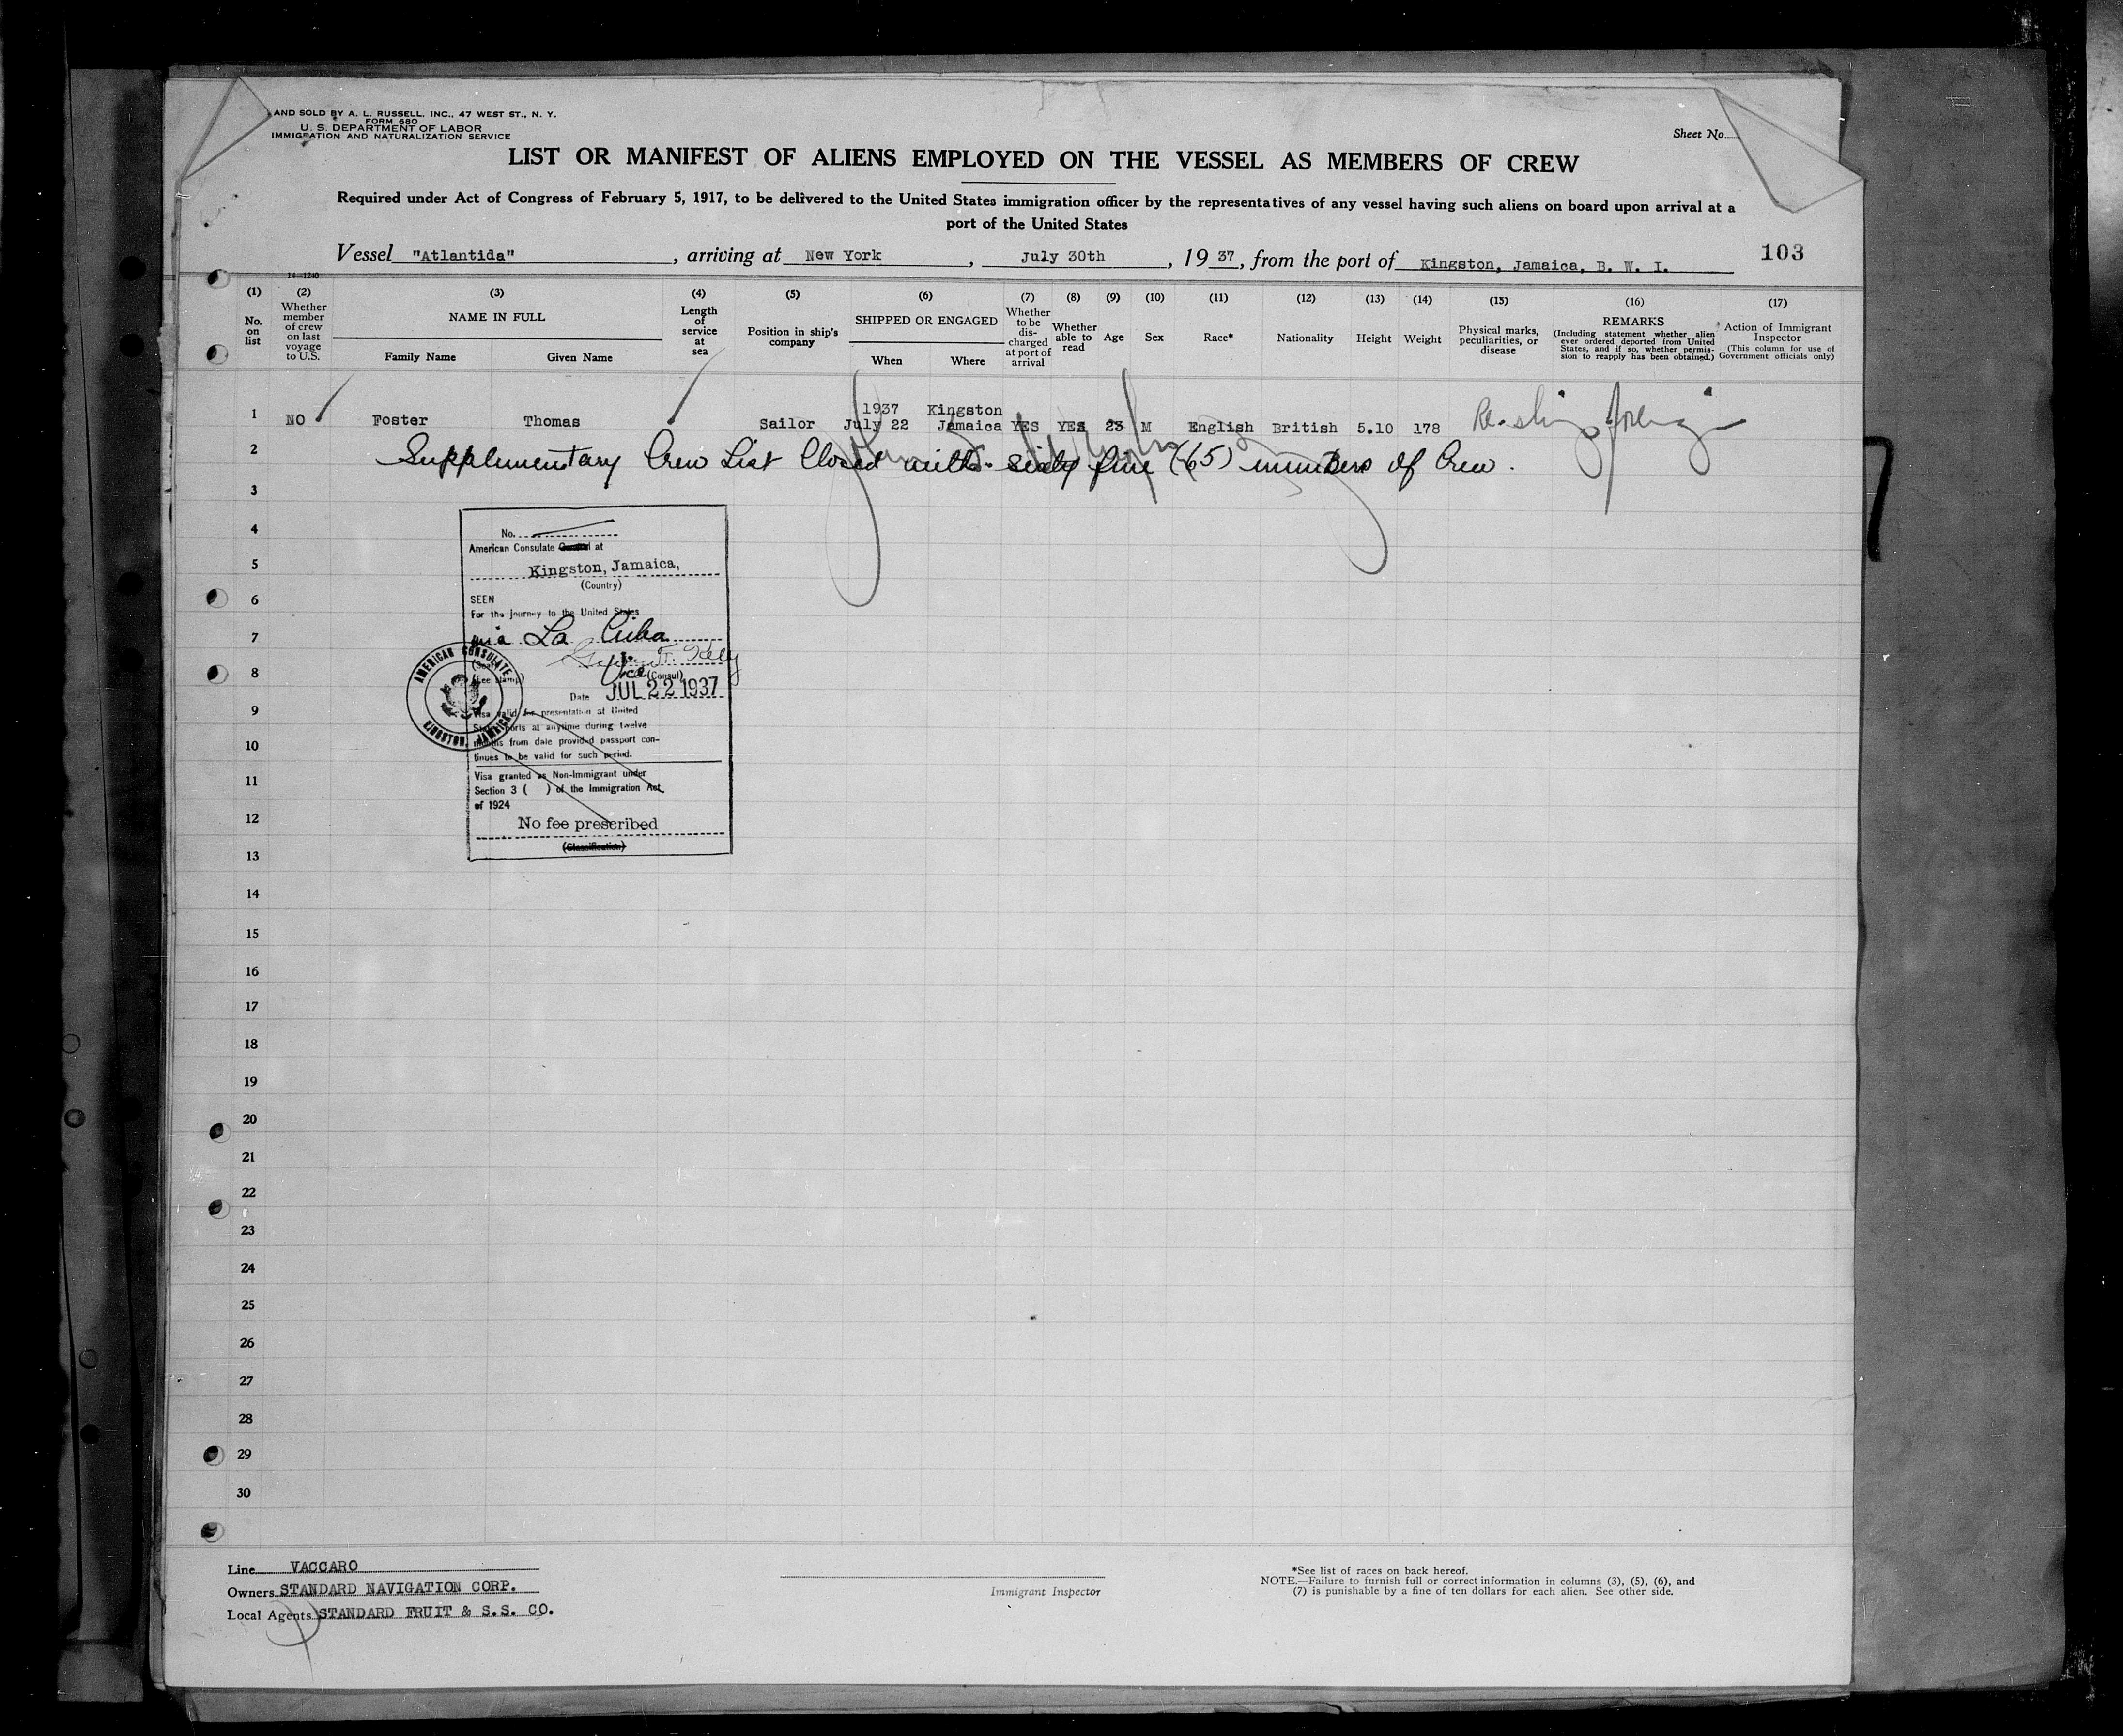 AND SOLD BY A. L. RUSSELL, INC., 47 WEST ST., N. Y.
FORM 680
U. S. DEPARTMENT OF LABOR
IMMIGRATION AND NATURALIZATION SERVICE
Sheet No.
LIST OR MANIFEST OF ALIENS EMPLOYED ON THE VESSEL AS MEMBERS OF CREW
Required under Act of Congress of February 5, 1917, to be delivered to the United States immigration officer by the representatives of any vessel having such aliens on board upon arrival at a
port of the United States
Vessel "Atlantida", arriving at New York, July 30th, 1937, from the port of Kingston, Jamaica, B. W. I.
103
14-1240
(1) No. on list
(2) Whether member of crew on last voyage to U.S.
(3) NAME IN FULL
Family Name Given Name
(4) Length of service at sea
(5) Position in ship's company
(6) SHIPPED OR ENGAGED
When Where
(7) Whether to be discharged at port of arrival
(8) Whether able to read
(9) Age
(10) Sex
(11) Race*
(12) Nationality
(13) Height
(14) Weight
(15) Physical marks, peculiarities, or disease
(16) REMARKS
(Including statement whether alien ever ordered deported from United States, and if so, whether permission to reapply has been obtained.)
(17) Action of Immigrant Inspector
(This column for use of Government officials only)
1937 Kingston
1 NO Foster Thomas Sailor July 22 Jamaica YES YES 23 M English British 5.10 178 Re-ship foreign
2 Supplementary Crew List Closed with sixty five (65) members of Crew.
3
4
5
6
7
8
9
10
11
12
13
14
15
16
17
18
19
20
21
22
23
24
25
26
27
28
29
30
No.
American Consulate General at
Kingston, Jamaica,
(Country)
SEEN
For the journey to the United States
via La Ceiba
(Seal)
(Fee stamp)
Vice (Consul)
Date JUL 22 1937
Visa valid for presentation at United
States ports at anytime during twelve
months from date provided passport con-
tinues to be valid for such period.
Visa granted as Non-Immigrant under
Section 3 ( ) of the Immigration Act
of 1924
No fee prescribed
(Classification)
AMERICAN CONSULATE
KINGSTON, JAMAICA
Line VACCARO
Owners STANDARD NAVIGATION CORP.
Local Agents STANDARD FRUIT & S.S. CO.
Immigrant Inspector
*See list of races on back hereof.
NOTE.—Failure to furnish full or correct information in columns (3), (5), (6), and
(7) is punishable by a fine of ten dollars for each alien. See other side.